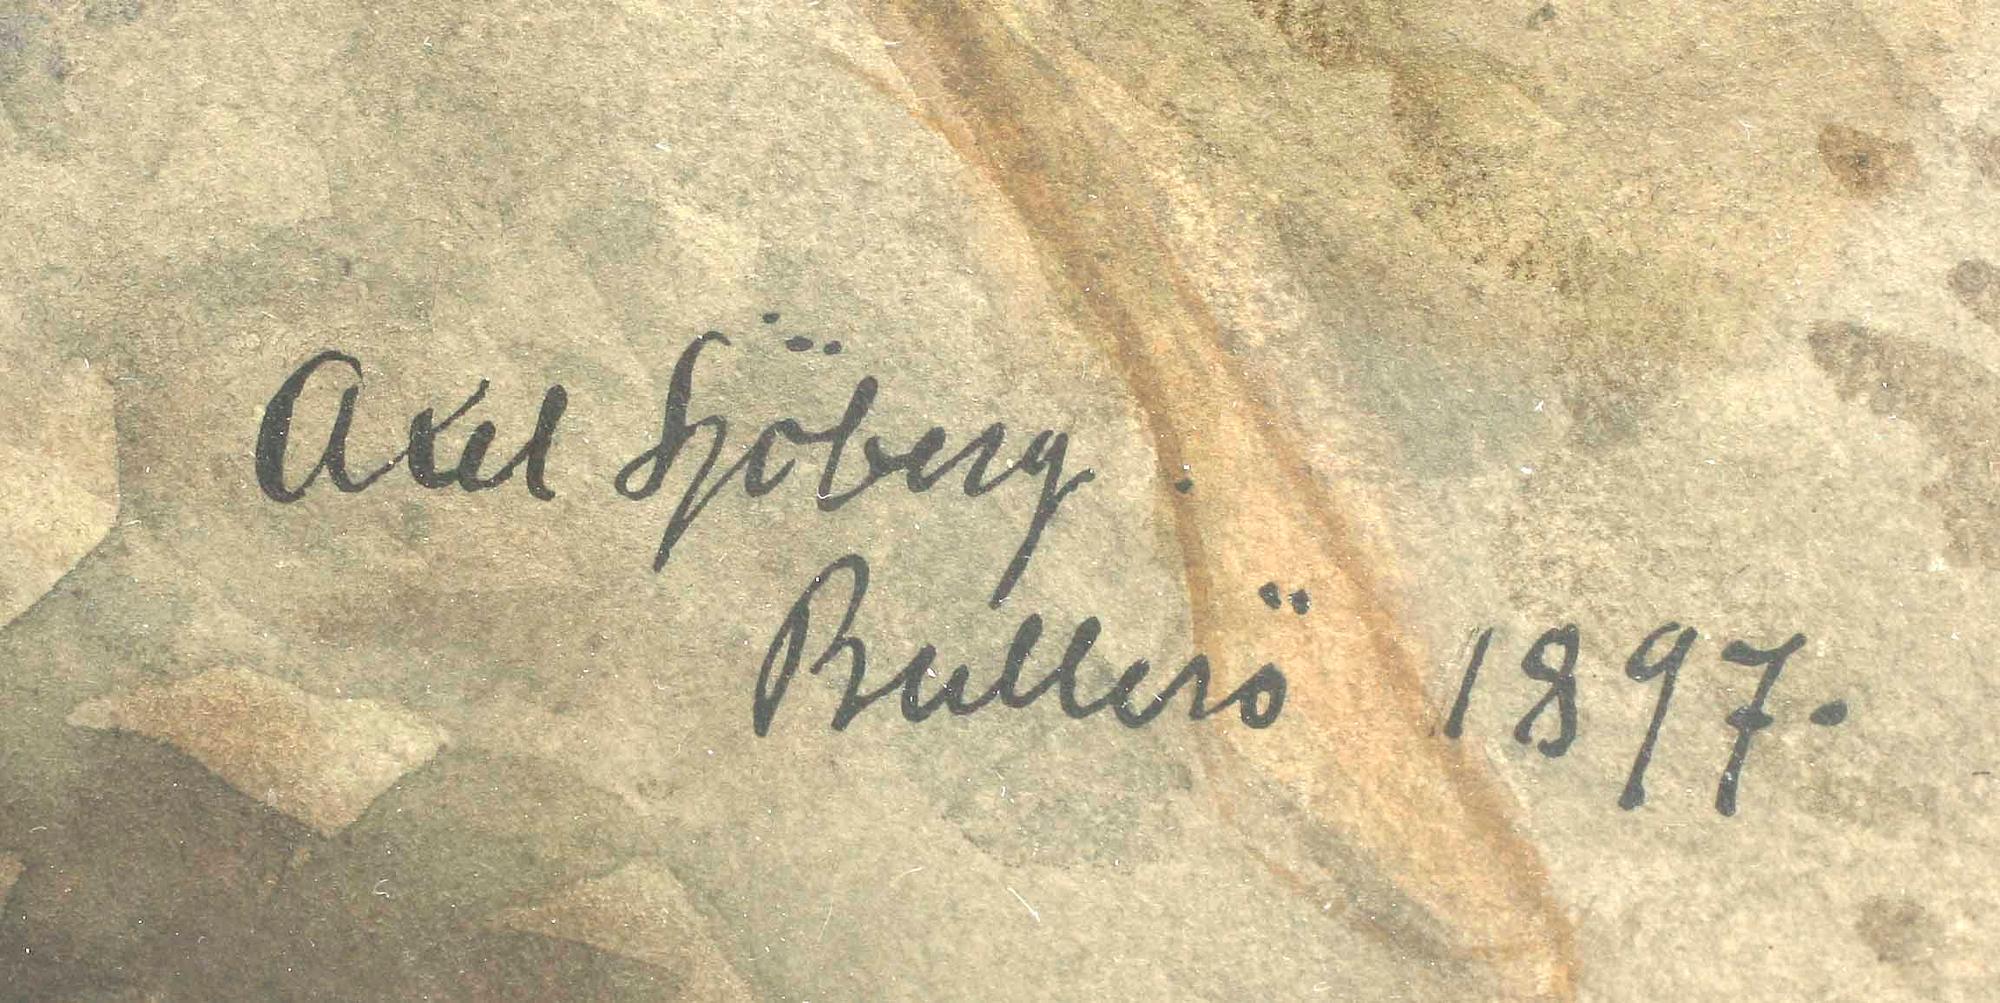 Axel Sjöberg.
Bullerö 1897.